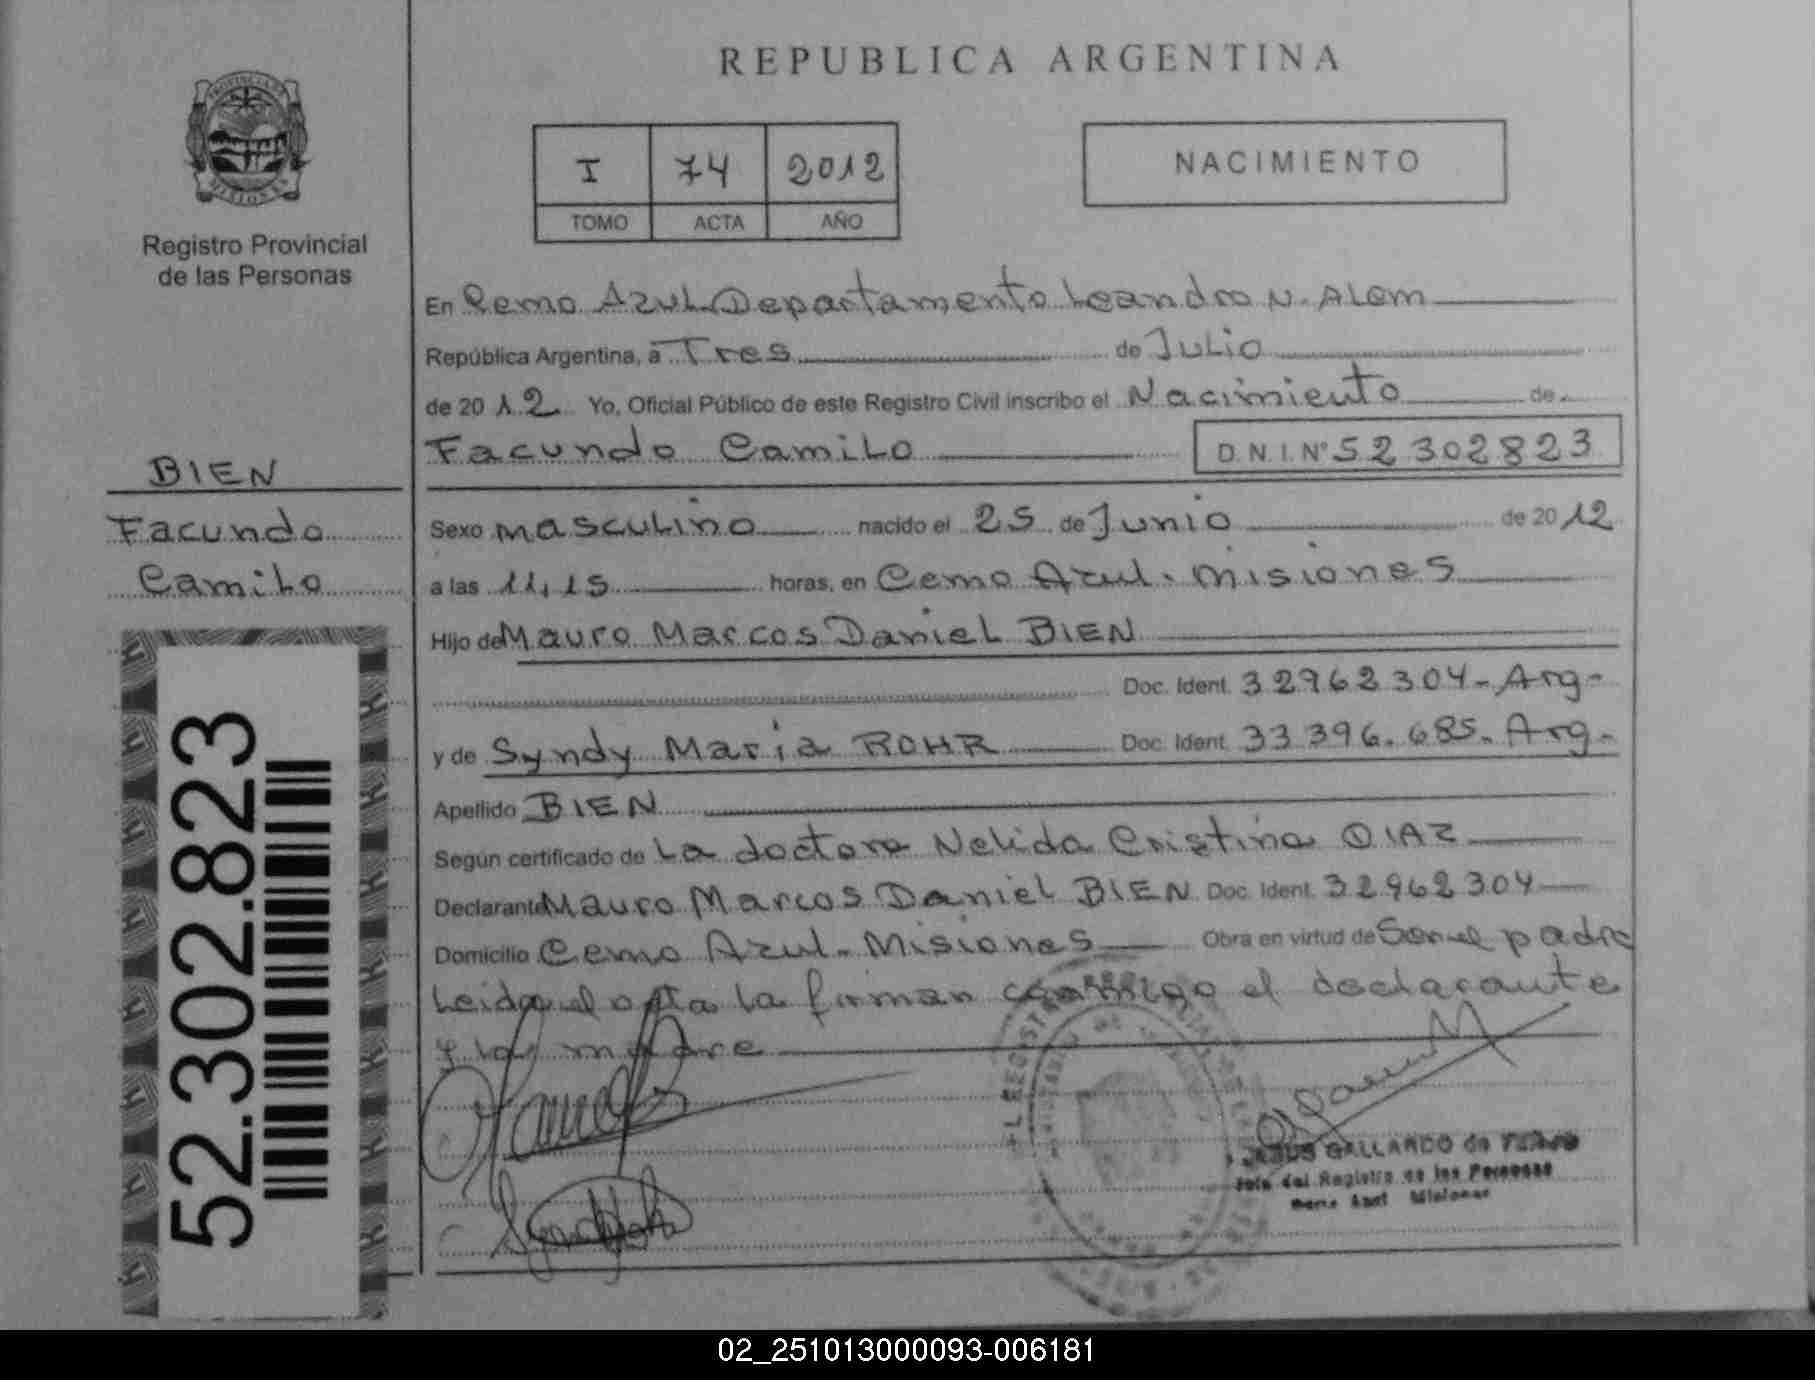 REPUBLICA ARGENTINA
PROVINCIA DE
MISIONES
Registro Provincial
de las Personas
I 74 2012
TOMO ACTA AÑO
NACIMIENTO
En Cerro Azul Departamento Leandro N. Alem
República Argentina, a Tres de Julio
de 2012 Yo, Oficial Público de este Registro Civil inscribo el Nacimiento de
Facundo Camilo D.N.I.Nº 52302823
BIEN
Facundo
Camilo
Sexo masculino nacido el 25 de Junio de 2012
a las 11,15 horas, en Cerro Azul. Misiones
Hijo de Mauro Marcos Daniel BIEN
Doc. Ident. 32962304-Arg-
y de Syndy Maria ROHR Doc. Ident. 33396.685-Arg-
Apellido BIEN
Según certificado de La doctora Nelida Cristina DIAZ
Declarante Mauro Marcos Daniel BIEN Doc. Ident. 32962304
Domicilio Cerro Azul-Misiones Obra en virtud de Ser el padre
Leida el acta la firman conmigo el declarante
y la madre
52.302.823
GALLARDO de
Jefe del Registro de las Personas
Cerro Azul Misiones
02_251013000093-006181